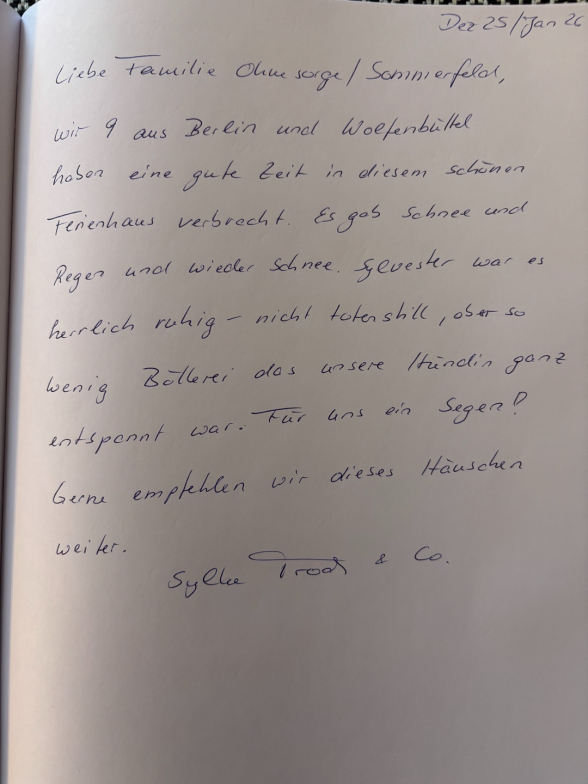 Dez 25/Jan 26
Liebe Familie Ohnesorge/Sommerfeld,
wir 9 aus Berlin und Wolfenbüttel
haben eine gute Zeit in diesem schönen
Ferienhaus verbracht. Es gab Schnee und
Regen und wieder Schnee. Sylvester war es
herrlich ruhig – nicht totenstill, aber so
wenig Böllerei das unsere Hündin ganz
entspannt war. Für uns ein Segen!
Gerne empfehlen wir dieses Häuschen
weiter.
Sylke & Co.